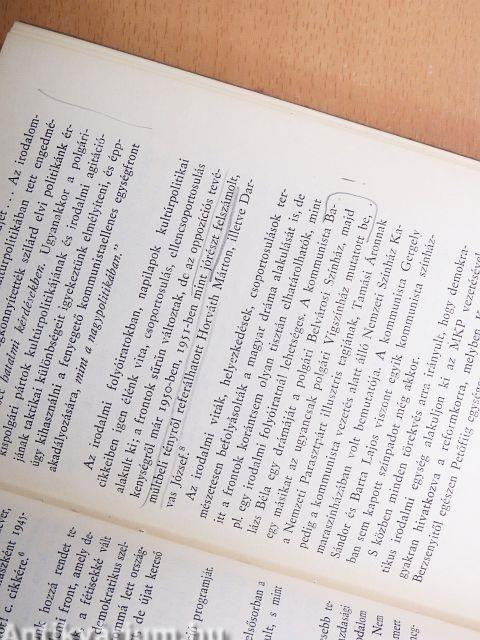 gkönnyítették szilárd elvi politikánk ér-
et hatalmi kérdésekben. Ugyanakkor a polgári-
kispolgári pártok kultúrpolitikájának és irodalmi agitáció-
jának taktikai különbségeit igyekeztünk elmélyíteni, és épp-
úgy kihasználni a fenyegető kommunistaellenes egységfront
akadályozására, mint a nagypolitikában."
Az irodalmi folyóiratokban, napilapok kultúrpolitikai
cikkeiben igen élénk vita, csoportosulás, ellencsoportosulás
alakult ki; a frontok sűrűn változtak, de az oppozíciós tevé-
kenységről már 1950-ben, 1951-ben mint jórészt felszámolt,
múltbeli tényről referálhatott Horváth Márton, illetve Dar-
vas József.⁸
Az irodalmi viták, helyezkedések, csoportosulások ter-
mészetesen befolyásolták a magyar dráma alakulását is, de
itt a frontok korántsem olyan tisztán elhatárolhatók, mint
pl. egy irodalmi folyóiratnál lehetséges. A kommunista Ba-
lázs Béla egy drámáját a polgári Belvárosi Színház, majd
egy másikat az ugyancsak polgári Vígszínház mutatott be,
a Nemzeti Parasztpárt illusztris tagjának, Tamási Áronnak
pedig s kommunista vezetés alatt álló Nemzeti Színház Ka-
maraszínházában volt bemutatója. A kommunista Gergely
Sándor és Barts Lajos viszont egyik kommunista színház-
ban sem kapott színpadot még akkor.
S közben minden törekvés arra irányult, hogy demokra-
tikus irodalmi egység alakuljon ki az MKP vezetésével,
gyakran hivatkozva a reformkorra, melyben
Berzsenyitől egészen Petőfiig egységes
c. cikkére.⁶
ak hozzá rendet te-
front, amely de-
a fétisekké vált
emokratikus szel-
mmá lett ország-
de újat kereső
programját.
elsősorban a
s mint
Antikvarium.hu